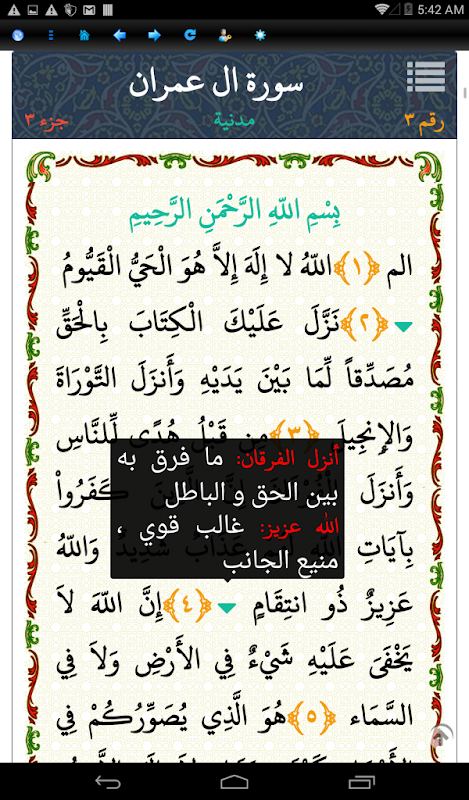 5:42 AM
سورة ال عمران
رقم ٣
مدنية
جزء ٣
بِسْمِ اللّهِ الرَّحْمَنِ الرَّحِيمِ
الم ﴿١﴾ اللّهُ لا إِلَهَ إِلاَّ هُوَ الْحَيُّ الْقَيُّومُ
﴿٢﴾ نَزَّلَ عَلَيْكَ الْكِتَابَ بِالْحَقِّ
مُصَدِّقاً لِّمَا بَيْنَ يَدَيْهِ وَأَنزَلَ التَّوْرَاةَ
وَالإِنجِيلَ ﴿٣﴾ مِن قَبْلُ هُدًى لِّلنَّاسِ
أنزل الفرقان: ما فرق به
بين الحق و الباطل
الله عزيز: غالب قوي ،
منيع الجانب
وَأَنزَلَ كَفَرُواْ
بِآيَاتِ وَاللّهُ
عَزِيزٌ ذُو انتِقَامٍ ﴿٤﴾ إِنَّ اللّهَ لاَ
يَخْفَىَ عَلَيْهِ شَيْءٌ فِي الأَرْضِ وَلاَ فِي
السَّمَاء ﴿٥﴾ هُوَ الَّذِي يُصَوِّرُكُمْ فِي